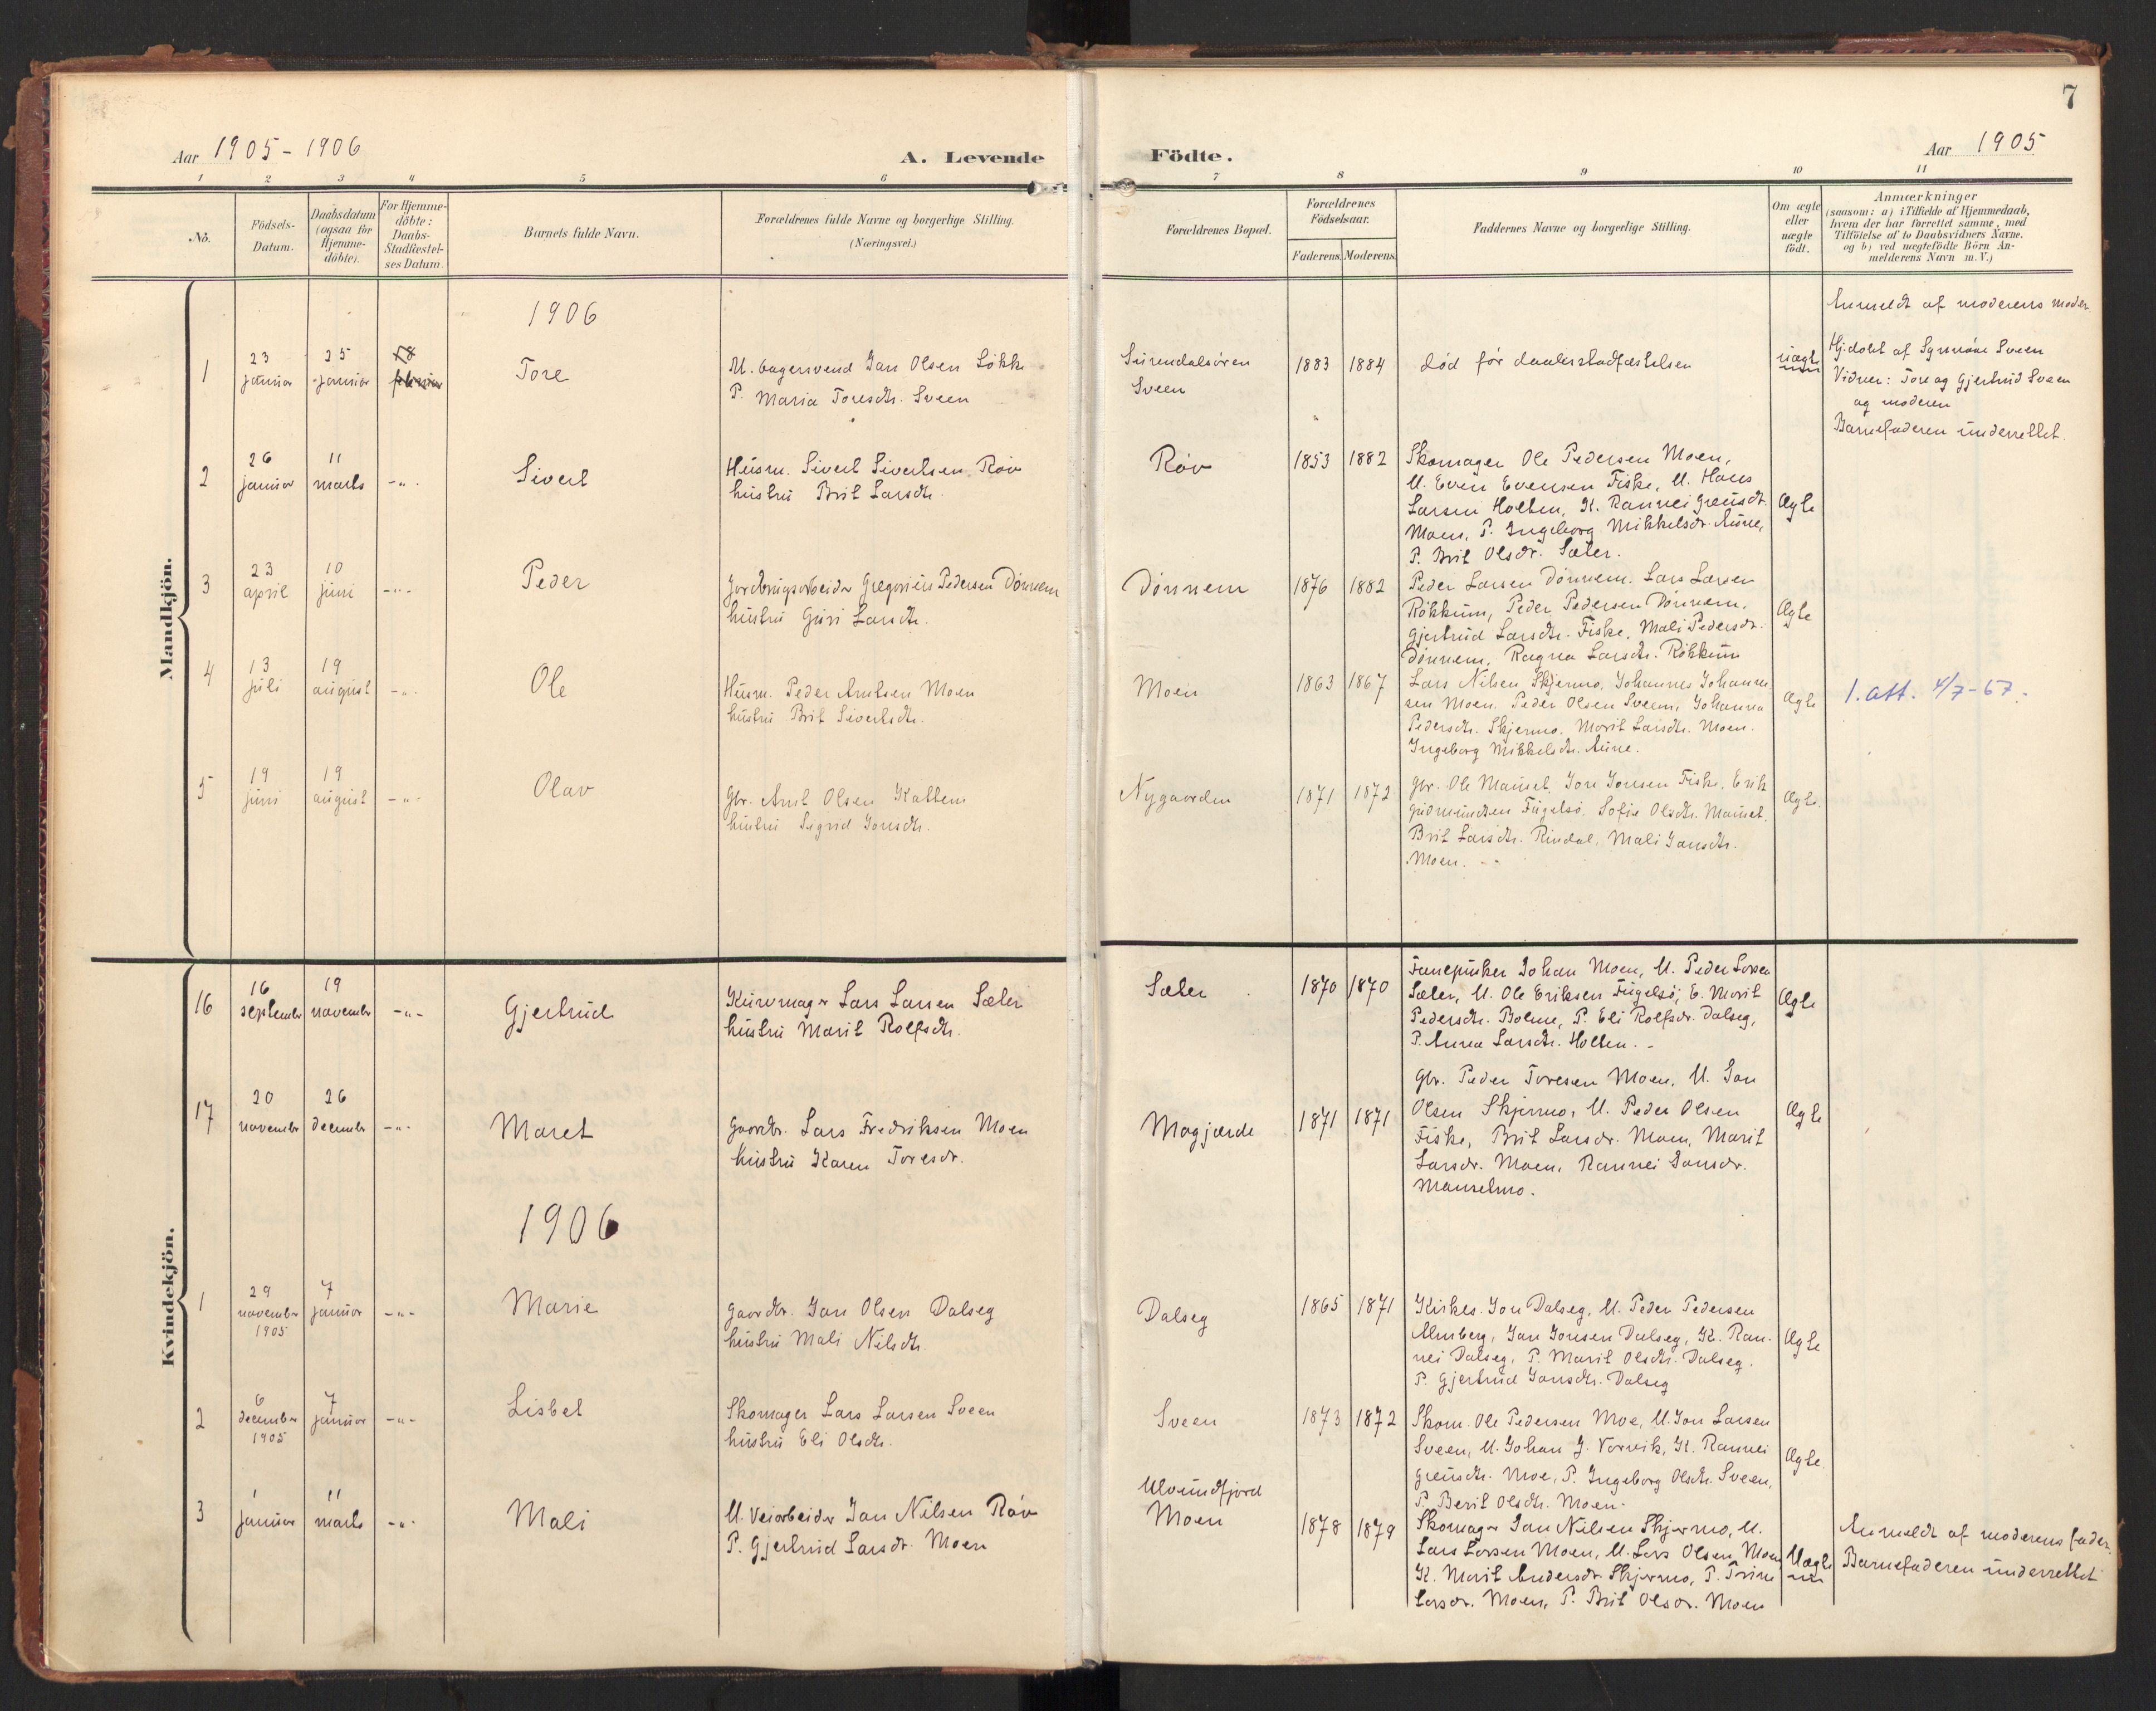 7
Aar 1905-1906
A. Levende
Födte.
Aar 1905
1 2 3 4 5 6
7 8 9 10 11
No.
Födsels-
Datum.
Daabsdatum
(ogsaa for
Hjemme-
döbte).
For Hjemme-
döbte:
Daabs-
Stadfæstel-
ses Datum.
Barnets fulde Navn.
Forældrenes fulde Navne og borgerlige Stilling.
(Næringsvei.)
Forældrenes Bopæl.
Forældrenes
Födselsaar.
Faderens.
Moderens.
Faddernes Navne og borgerlige Stilling.
Om ægte
eller
uægte
födt.
Anmærkninger
(saasom: a) i Tilfælde af Hjemmedaab,
hvem der har forrettet samme, med
Tilföielse af to Daabsvidners Navne.
og b) ved uægtefödte Börn An-
melderens Navn m. V.)
Mandkjön.
1906
1
23
januar
25
januar
18
februar
Tore
U. bagersvend Jon Olsen Løkke
P. Maria Toresdtr. Sveen
Surendalsøren
Sveen
1883
1884
død før daabsstadfæstelsen
uægte
Anmeldt af moderens moder
Hj.døbt af Synnøve Sveen
Vidner: Tore og Gjertrud Sveen
og moderen
Barnefaderen underrettet.
2
26
januar
11
marts
-"-
Sivert
Husm. Sivert Sivertsen Røv
hustru Brit Larsdtr.
Røv
1853
1882
Skomager Ole Pedersen Moen,
U. Even Evensen Fiske, U. Hans
Larsen Holten, K. Rannei Greusdt.
Moen, P. Ingeborg Mikkelsdr. Aune,
P. Brit Olsdr. Sæter.
Ægte
3
23
april
10
juni
-"-
Peder
Jordbrugsarbeider Gregorius Pedersen Dønnem
hustru Guri Larsdtr.
Dønnem
1876
1882
Peder Larsen Dønnem. Lars Larsen
Røkkum, Peder Pedersen Dønnem.
Gjertrud Larsdtr. Fiske, Mali Pedersdr.
Dønnem, Ragna Larsdtr. Røkkum
Ægte
4
13
juli
19
august
-"-
Ole
Husm. Peder Arntsen Moen
hustru Brit Sivertsdtr.
Moen
1863
1867
Lars Nilsen Skjermo, Johannes Johannes-
sen Moen. Peder Olsen Sveen, Johanna
Pedersdtr. Skjermo. Marit Larsdtr. Moen.
Ingeborg Mikkelsdtr. Aune.
Ægte
1. att. 4/7-67.
5
19
juni
19
august
-"-
Olav
Gbr. Arnt Olsen Kattem
hustru Sigrid Jonsdtr.
Nygaarden
1871
1872
Gbr. Ole Mauset, Jon Jonsen Fiske, Erik
Gudmundsen Fugelsø, Sofie Olsdtr. Mauset,
Brit Larsdtr. Rindal, Mali Jonsdtr.
Moen. --
Ægte.
Kvindekjön.
16
16
september
19
november
-"-
Gjertrud
Kurvmager Lars Larsen Sæter
hustru Marit Rolfsdtr.
Sæter
1870
1870
Johan Moen, U. Peder Larsen
Sæter, U. Ole Eriksen Fugelsø, E. Marit
Pedersdtr. Bolme, P. Eli Rolfsdr. Dalseg,
P. Anna Larsdtr. Holten. -
Ægte
17
20
november
26
december
-"-
Maret
Gaardbr. Lars Fredriksen Moen
hustru Karen Toresdr.
Mogjærde
1871
1871
Gbr. Peder Toresen Moen, U. Jon
Olsen Skjermo, U. Peder Olsen
Fiske, Brit Larsdr. Moen, Marit
Larsdr. Moen, Rannei Jonsdr.
Mauselmo.
Ægte
1906
1
29
november
1905
7
januar
-"-
Marie
Gaardbr. Jon Olsen Dalseg
hustru Mali Nilsdtr.
Dalseg
1865
1871
Kirkes. Jon Dalseg, U. Peder Pedersen
Almberg, Jon Jonsen Dalseg, K. Ran-
nei Dalseg, P. Marit Olsdtr. Dalseg.
P. Gjertrud Jonsdtr. Dalseg
Ægte
2
6
december
1905
7
januar
-"-
Lisbet
Skomager Lars Larsen Sveen
hustru Eli Olsdtr.
Sveen
1873
1872
Skom. Ole Pedersen Moe, U. Jon Larsen
Sveen, U. Johan J. Norvik, K. Rannei
Greusdtr. Moe, P. Ingeborg Olsdtr. Sveen,
P. Berit Olsdtr. Moen.
Ægte.
3
1
januar
11
marts
-"-
Mali
U. Veiarbeider Jon Nilsen Røv
P. Gjertrud Larsdr. Moen
Ulvundfjord
Moen
1878
1879
Skomager Jon Nilsen Skjermo, U.
Lars Larsen Moen, U. Lars Olsen Moen
K. Marit Andersdr. Skjermo, P. Trine
Larsdr. Moen, P. Brit Olsdr. Moen
Uægte
Anmeldt af moderens fader.
Barnefaderen underrettet